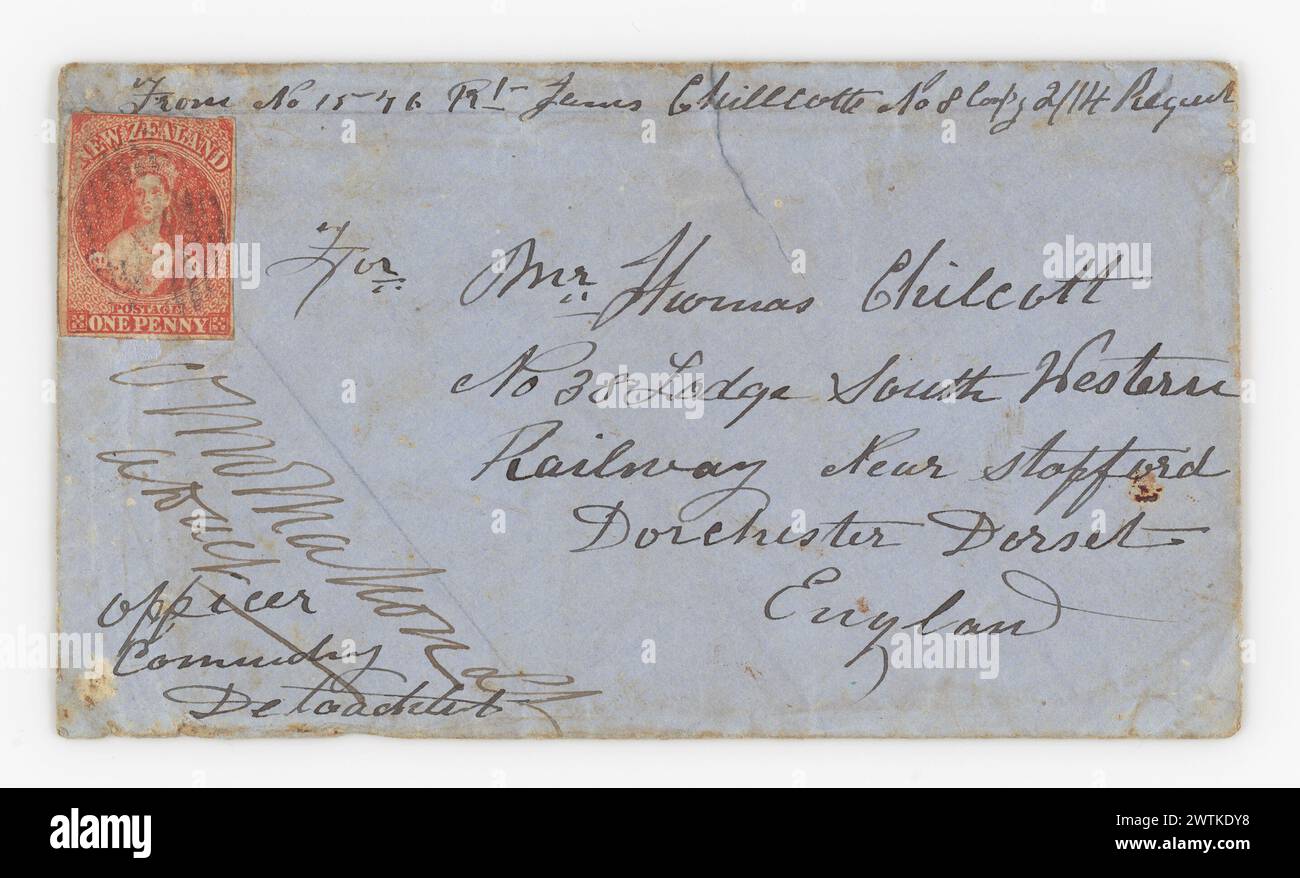 From No 1576 Rt James Chillcotte No 8 Coy 2/14 Regmt
NEW ZEALAND
POSTAGE
ONE PENNY
For Mr Thomas Chilcott
No 38 Lodge South Western
Railway Near Stafford
Dorchester Dorset
England
officer
Commdng
Detatchet
alamy
Image ID: 2WTKDY8
www.alamy.com